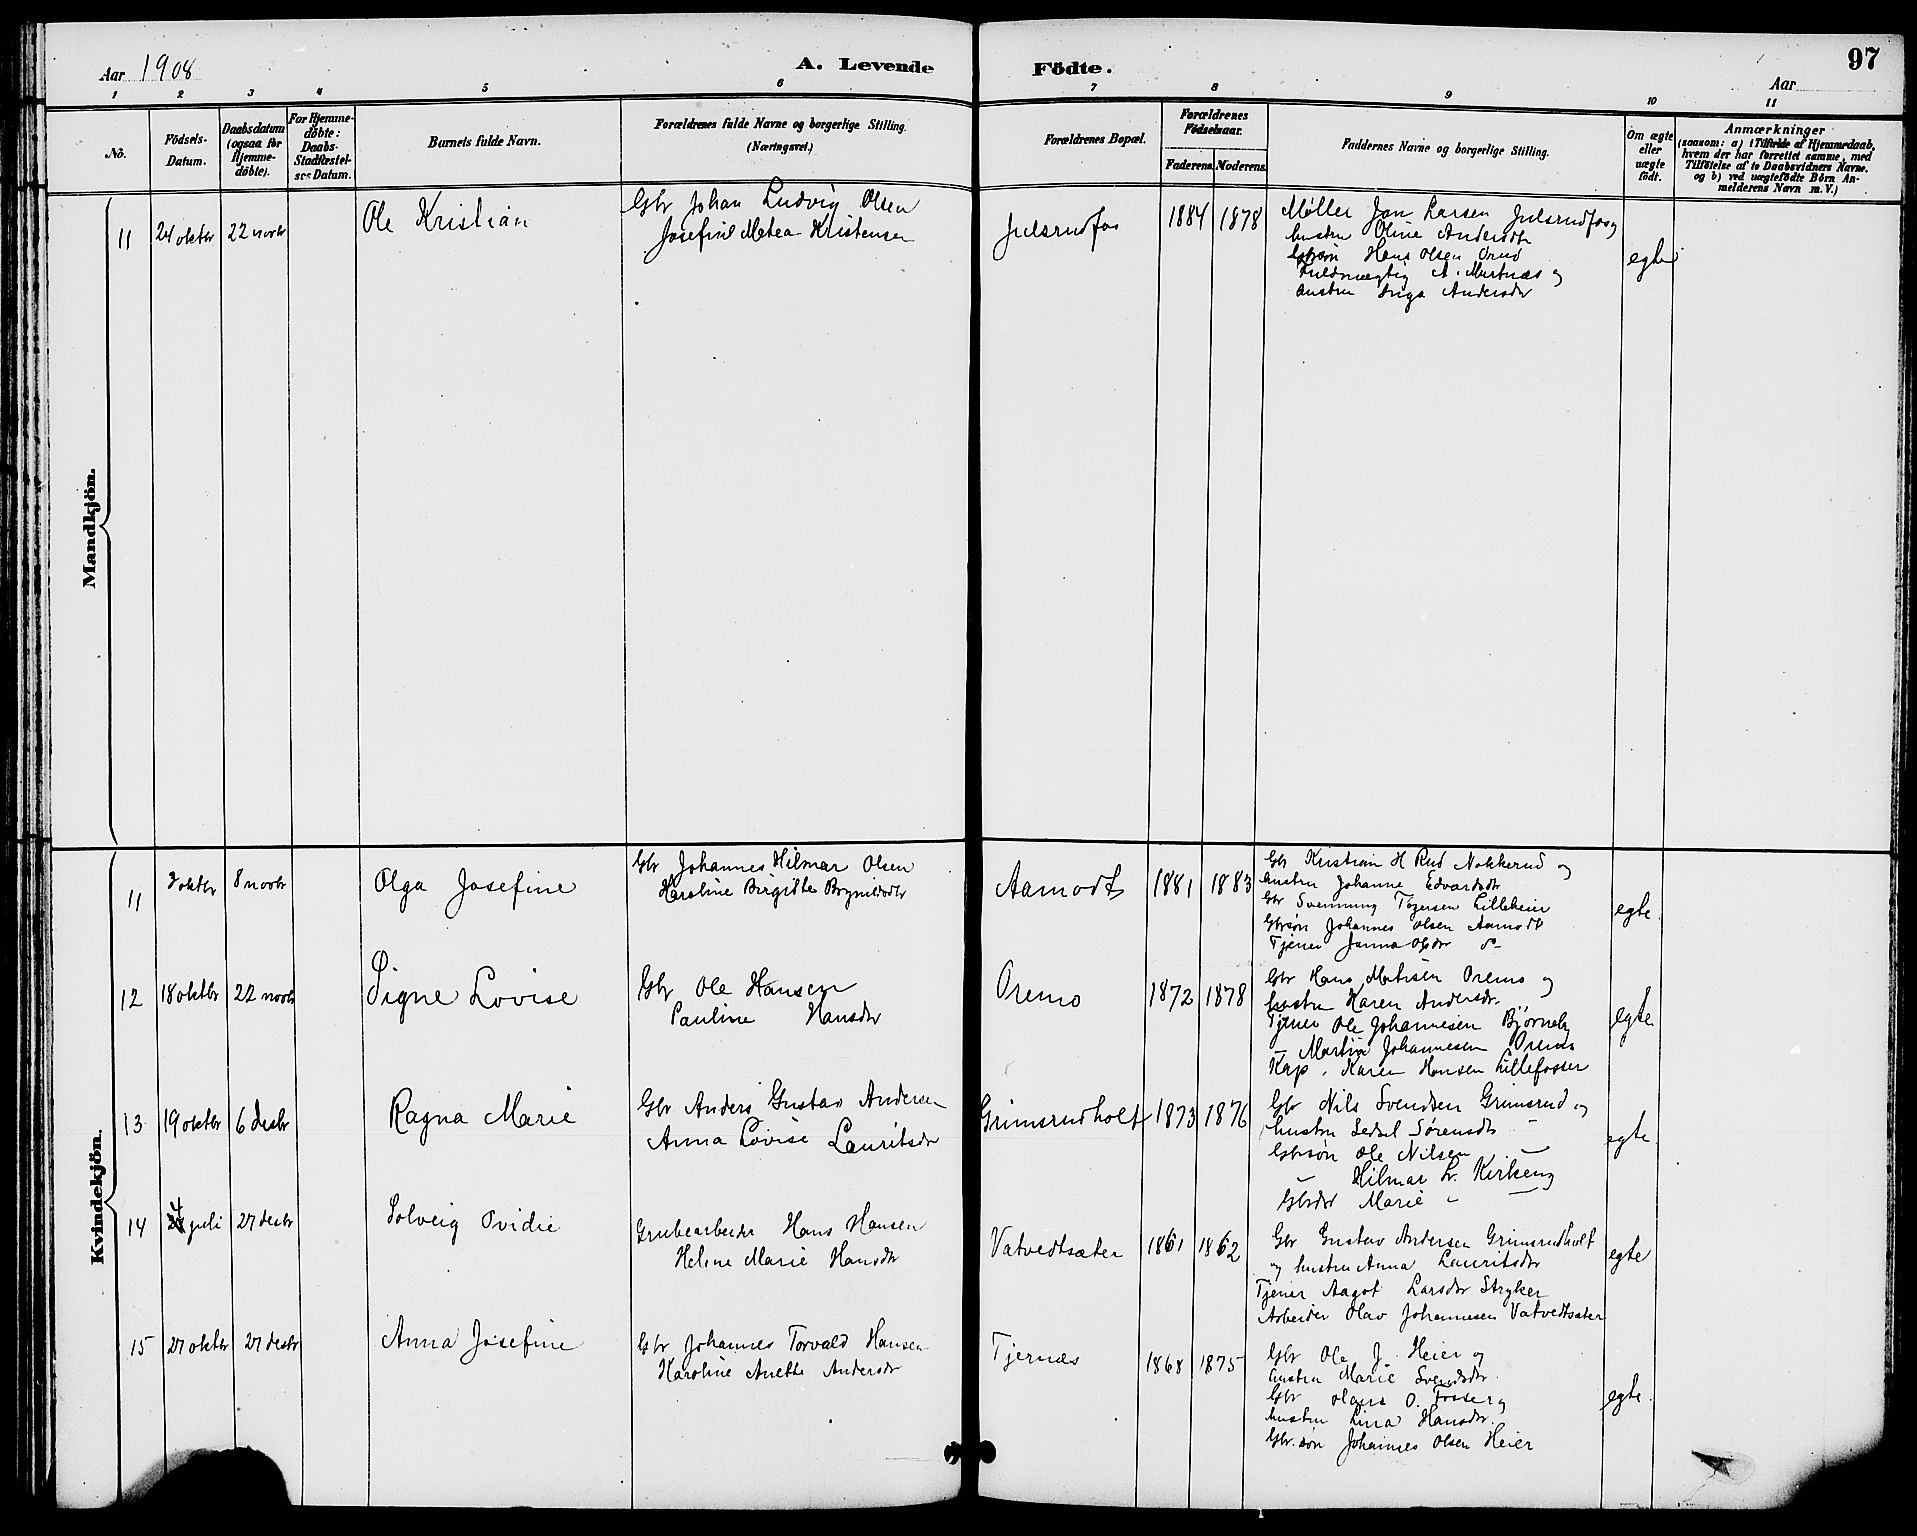 Aar 1908
A. Levende Födte.
97
Aar
1 2 3 4 5 6 7 8 9 10 11
No.
Födsels-Datum.
Daabsdatum (ogsaa for Hjemme-döbte).
For Hjemme-döbte: Daabs-Stadfæstel-ses Datum.
Barnets fulde Navn.
Forældrenes fulde Navne og borgerlige Stilling.
(Næringsvei.)
Forældrenes Bopæl.
Forældrenes Födselsaar.
Faderens. Moderens.
Faddernes Navne og borgerlige Stilling.
Om ægte eller uægte födt.
Anmærkninger
(saasom: a) i Tilfælde af Hjemmedaab,
hvem der har forrettet samme, med
Tilföielse af to Daabsvidners Navne.
og b) ved uægtefödte Börn An-
melderens Navn m. V.)
Mandkjön.
11 24 oktbr 22 novbr Ole Kristian
Gbr Johan Ludvig Olsen
Josefine Metea Kristensen
Julsrudfos 1884 1878
Møller Jan Larsen Julsrudfos og
hustru Oline Andersdtr
Gbrsøn Hans Olsen Ørud
Fuldmægtig A. Mertnæs og
hustru Inga Andersdtr
egte
Kvindekjön.
11 3 oktbr 8 novbr Olga Josefine
Gbr Johannes Hilmar Olsen
Karoline Birgitte Brynildsdtr
Aamodt 1881 1883
Gbr Kristian H Rud Nokkerud og
hustru Johanne Edvardsdtr
Gbr Svenning Tøgersen Lilleheier
Gbrsøn Johannes Olsen Aamodt
Tjener Janna Olsdtr do
egte
12 18 oktbr 22 novbr Signe Lovise
Gbr Ole Hansen
Pauline Hansdtr
Oremo 1872 1878
Gbr Hans Mathisen Oremo og
hustru Karen Andersdtr.
Tjener Ole Johannesen Bjørneby
— Martin Johannesen Oremo
Kap. Karen Hansen Lillefosser
egte
13 19 oktbr 6 desbr Ragna Marie
Gbr Anders Gustav Andersen
Anna Lovise Lauritsdtr
Grimsrudholt 1873 1876
Gbr Nils Svendsen Grimsrud og
hustru Sedsel Sørensdtr —
Gbrsøn Ole Nilsen —
— Hilmar L. Kirkeng
Gbrdtr Marie — —
egte
14 24 juli 27 desbr Solveig Ovidie
Grubearbeider Hans Hansen
Helene Marie Hansdtr
Vatvedtsæter 1861 1862
Gbr Gustav Andersen Grimsrudholt
og hustru Anna Lauritsdtr
Tjener Aagot Larsdtr Stryker
Arbeider Olav Johannesen Vatvedtsæter
egte
15 27 oktbr 27 desbr Anna Josefine
Gbr Johannes Torvald Hansen
Karoline Anette Andersdtr
Tjernæs 1868 1875
Gbr Ole J. Heier og
hustru Marie Svendsdtr
Gbr Olaus O. Fosser og
hustru Lina Hansdtr.
Gbr.søn Johannes Olsen Heier
egte.